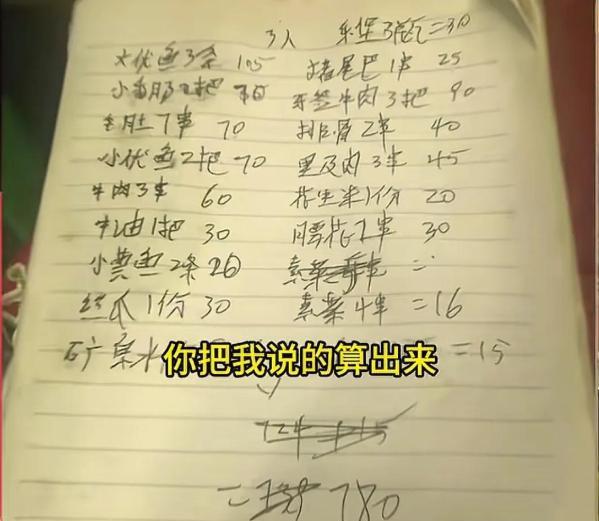 3人 乐堡3瓶=30
大优鱼3条 105 猪尾巴1串 25
小 2把 牙签牛肉3把 90
毛肚7串 70 排骨2串 40
小优鱼2把 70 里及肉3串 45
牛肉3串 60 花生米1份 20
牛油1把 30 腰花2串 30
小黄鱼2条 20 素菜 =
丝瓜1份 30 素菜4串 =16
矿泉水 =15
你把我说的算出来
= 780